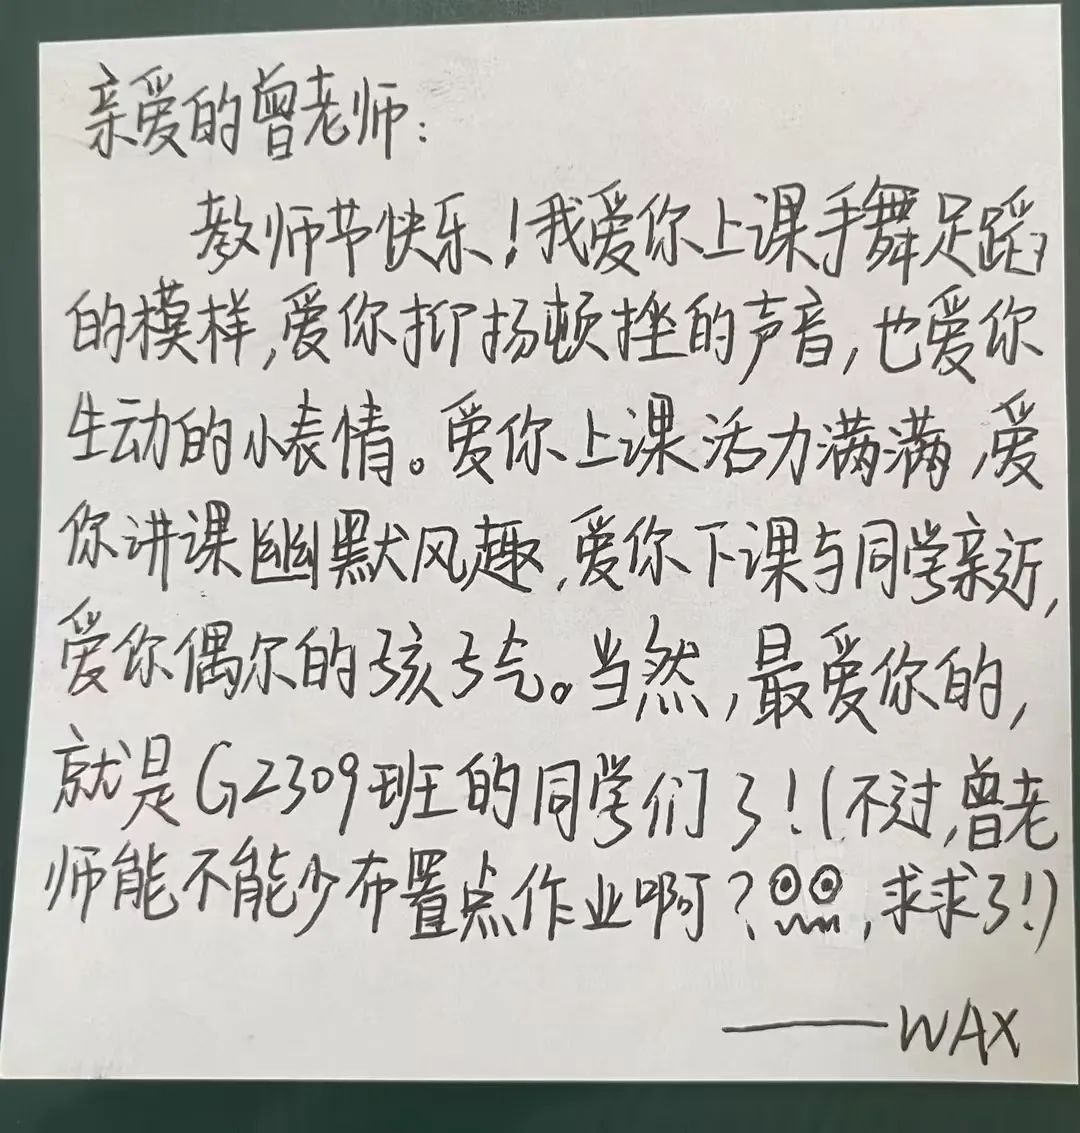 亲爱的曾老师：
教师节快乐！我爱你上课手舞足蹈
的模样，爱你抑扬顿挫的声音，也爱你
生动的小表情。爱你上课活力满满，爱
你讲课幽默风趣，爱你下课与同学亲近，
爱你偶尔的孩子气。当然，最爱你的，
就是G2309班的同学们了！（不过，曾老
师能不能少布置点作业啊？，求求了！）
——WAX